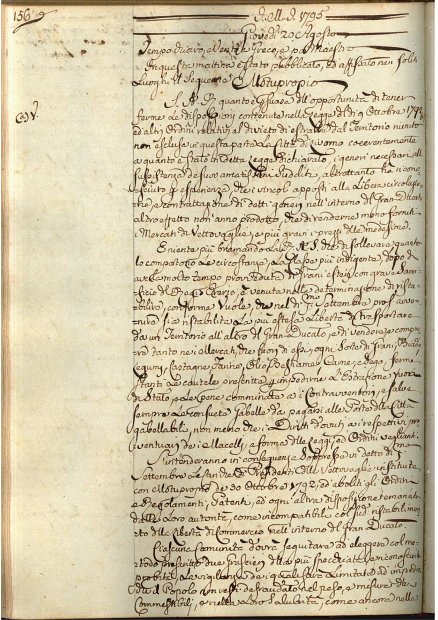 156
A. M. D. 1795
Giovedì 20 Agosto
Tempo vario, e Vento Greco, e p. Maestro
In questa mattina è stato pubblicato, ed affisso nei soliti
Luoghi il seguente Motuproprio
S. A. R. quanto è persuasa dell'opportunità di tener
ferme le disposizioni contenute nella Legge de' di 9 Ottobre
ed altri Ordini relativi al divieto di estrarre dal Territorio riunito
non esclusa in questa parte la Città di Livorno coerentemente
a quanto è stato in detta Legge dichiarato, i generi necessari alla
sussistenza dei suoi amatissimi Sudditi, altrettanto ha riconosciuto
p. esperienza, che i vincoli apposti alla Libera circolazione,
e contrattazione di detti generi nell'interno del Gran Ducato
altro effetto non anno prodotto, che di renderne meno forniti
i Mercati di Vettovaglie, e più gravi i prezzi delle medesime.
E niente più bramando la R. A. S. che di sollevare quanto
lo comportano le circostanze, la Classe più indigente, dopo d'
aver molto tempo provveduto di Grani esteri con grave sacrificio
del Regio Erario, è venuta nella determinazione di ristabilire,
conforme Vuole, che nel dì Settembre pross. avvenire
sia ristabilita la più estesa Libertà di trasportare
da un Territorio all'altro del Gran Ducato, e di vendere, e comprare
tanto nei Mercati, che fuori di essi, ogni Sorte di Grani, Biade
Legumi, Castagne, Farine, Olio, Bestiame, Carne, e Lego, ferme
stanti le cautele prescritte p. impedirne l'Estrazione fuori
di Stato, e le pene comminate ai Contravventori, e salve
sempre le consuete Gabelle da pagarsi alle Porte della Città
gabellabili, non meno che i Diritti dovuti ai respettivi proventuari
dei Macelli a forma delle Leggi, ed Ordini veglianti.
S'intenderanno in conseguenza soppresse in detto dì
Settembre le stanze di Presidenti delle Vettovaglie instituite
con Motuproprio de' 30 Ottobre 1792, ed aboliti gli Ordini
e Regolamenti, Patenti, ed ogni altra disposizione emanata
dalle loro autorità, come incompatibile col sud. ristabilimento
della Libertà di Commercio nell'interno del Gran Ducato.
Ciascuna Comunità dovrà seguitare ad eleggere col metodo
prescritto due Grascieri della più specchiata, e riconosciuta
probità, la vigilanza dei quali sarà limitata ad impedire
che il Popolo non resti defraudato nel peso, e misura dei
Commestibili, e nella Loro Salubrità, come ancora nelle